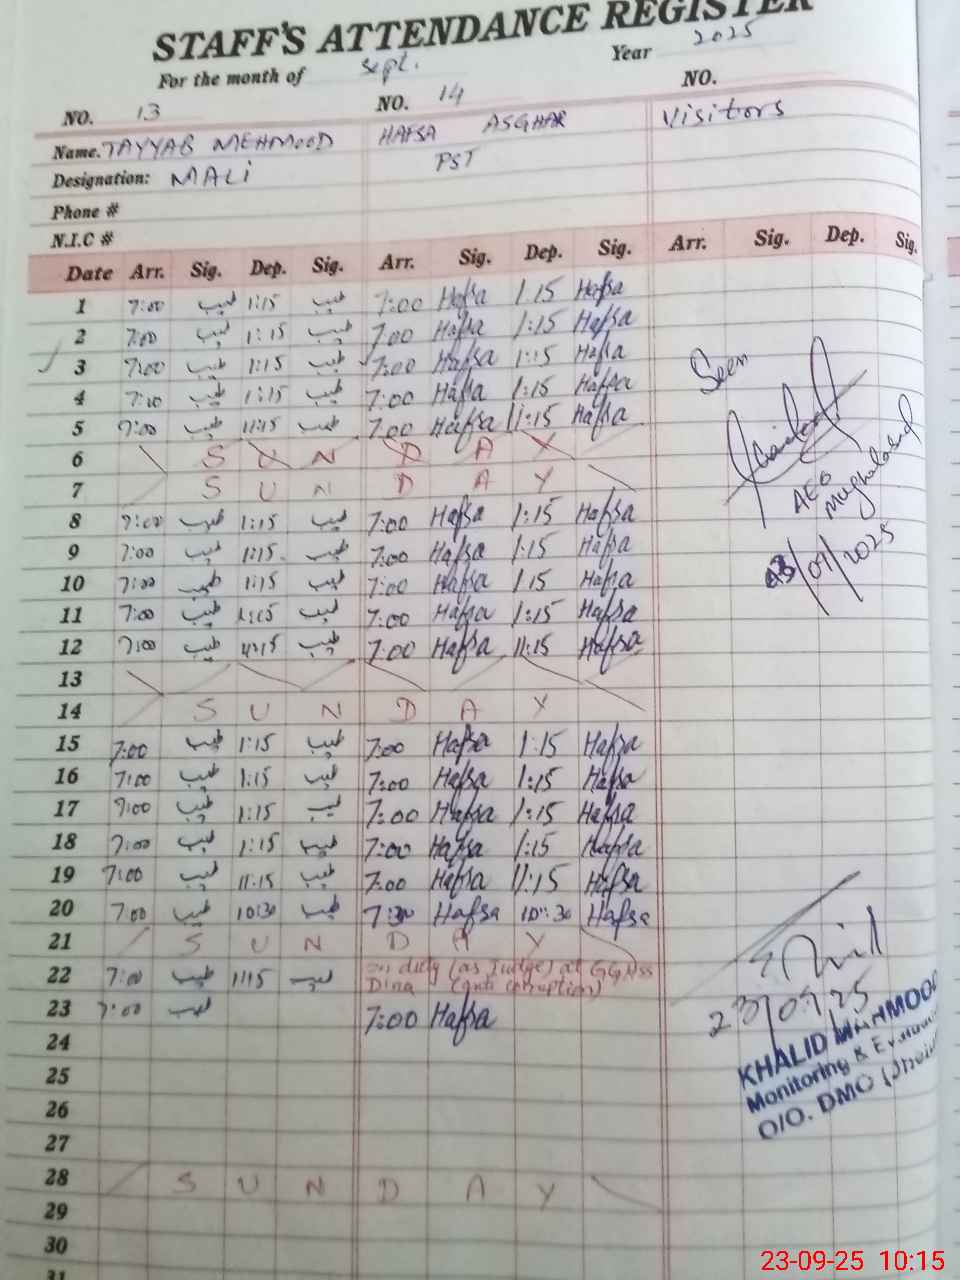 STAFF'S ATTENDANCE REGISTER
For the month of Sept. Year 2025
NO. 13 NO. 14 NO.
Name. TAYYAB MEHMOOD HAFSA ASGHAR Visitors
Designation: MALI PST
Phone #
N.I.C #
Date Arr. Sig. Dep. Sig. Arr. Sig. Dep. Sig. Arr. Sig. Dep. Sig.
1 7:00 طیب 1:15 طیب 7:00 Hafsa 1:15 Hafsa
2 7:00 طیب 1:15 طیب 7:00 Hafsa 1:15 Hafsa
3 7:00 طیب 1:15 طیب 7:00 Hafsa 1:15 Hafsa Seen
4 7:00 طیب 1:15 طیب 7:00 Hafsa 1:15 Hafsa
5 7:00 طیب 11:15 طیب 7:00 Hafsa 11:15 Hafsa
6 S U N D A Y
7 S U N D A Y AEO
8 7:00 طیب 1:15 طیب 7:00 Hafsa 1:15 Hafsa Mughalabad
9 7:00 طیب 1:15 طیب 7:00 Hafsa 1:15 Hafsa /09/2025
10 7:00 طیب 1:15 طیب 7:00 Hafsa 1:15 Hafsa
11 7:00 طیب 1:15 طیب 7:00 Hafsa 1:15 Hafsa
12 7:00 طیب 11:15 طیب 7:00 Hafsa 11:15 Hafsa
13
14 S U N D A Y
15 7:00 طیب 1:15 طیب 7:00 Hafsa 1:15 Hafsa
16 7:00 طیب 1:15 طیب 7:00 Hafsa 1:15 Hafsa
17 7:00 طیب 1:15 طیب 7:00 Hafsa 1:15 Hafsa
18 7:00 طیب 1:15 طیب 7:00 Hafsa 1:15 Hafsa
19 7:00 طیب 11:15 طیب 7:00 Hafsa 11:15 Hafsa
20 7:00 طیب 10:30 طیب 7:30 Hafsa 10:30 Hafsa
21 S U N D A Y
22 7:00 طیب 1:15 طیب on duty (as Judge) at GGHSS
Dina (anti corruption)
23 7:00 طیب 7:00 Hafsa 23/09/25
24
25 KHALID MAHMOOD
26 Monitoring &
27 O/O. DMO
28 S U N D A Y
29
30
31
23-09-25 10:15